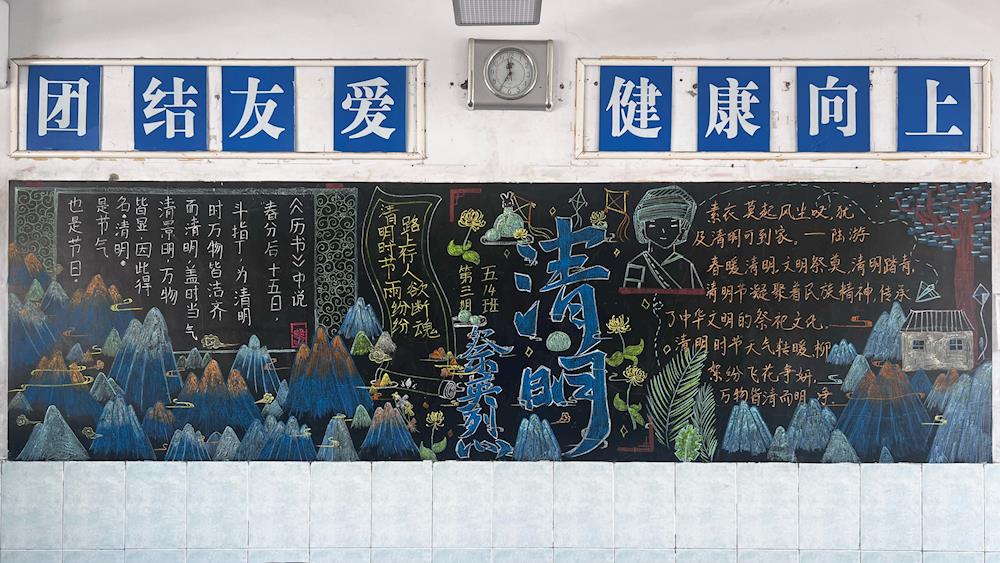 团结友爱
健康向上
《历书》中说
春分后十五日，
斗指丁，为清明
时万物皆洁齐
而清明，盖时当气
清景明，万物
皆显，因此得
名。清明。
是节气
也是节日。
路上行人欲断魂
清明时节雨纷纷
五4班
第三期
清明
祭英烈心
素衣莫起风尘叹，犹
及清明可到家。——陆游
春暖清明，文明祭奠，清明踏青，
清明节凝聚着民族精神，传承
了中华文明的祭祀文化。
清明时节天气转暖，柳
絮纷飞花争妍，
万物皆清而明净